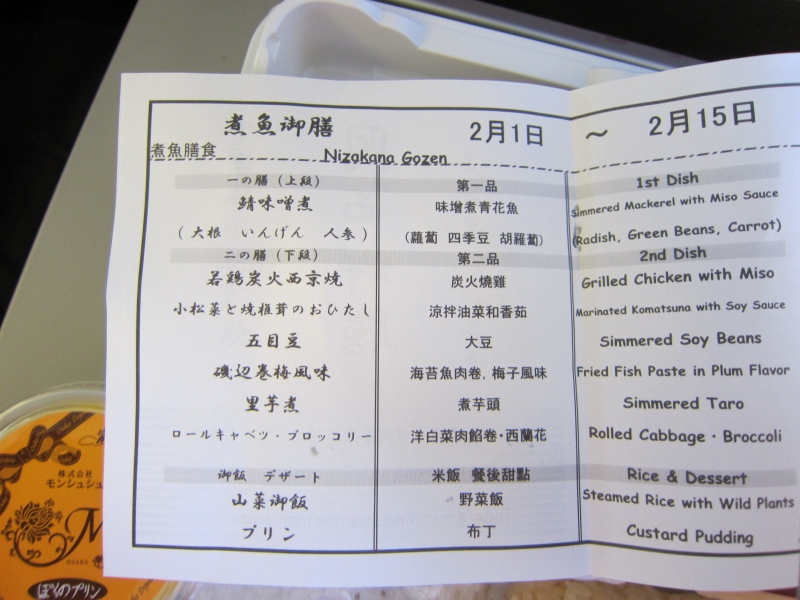 煮魚御膳 2月1日 ～ 2月15日
煮魚膳食 Nizakana Gozen
一の膳（上段） 第一品 1st Dish
鯖味噌煮 味增煮青花魚 Simmered Mackerel with Miso Sauce
（大根 いんげん 人参） (蘿蔔 四季豆 胡羅蔔) (Radish, Green Beans, Carrot)
二の膳（下段） 第二品 2nd Dish
若鶏炭火西京焼 炭火燒雞 Grilled Chicken with Miso
小松菜と焼椎茸のおひたし 涼拌油菜和香茹 Marinated Komatsuna with Soy Sauce
五目豆 大豆 Simmered Soy Beans
磯辺巻梅風味 海苔魚肉卷, 梅子風味 Fried Fish Paste in Plum Flavor
里芋煮 煮芋頭 Simmered Taro
ロールキャベツ・ブロッコリー 洋白菜肉餡卷・西蘭花 Rolled Cabbage・Broccoli
御飯 デザート 米飯 餐後甜點 Rice & Dessert
山菜御飯 野菜飯 Steamed Rice with Wild Plants
プリン 布丁 Custard Pudding
株式会社
モンシュシュ
M
OSAKA
ぼくのプリン